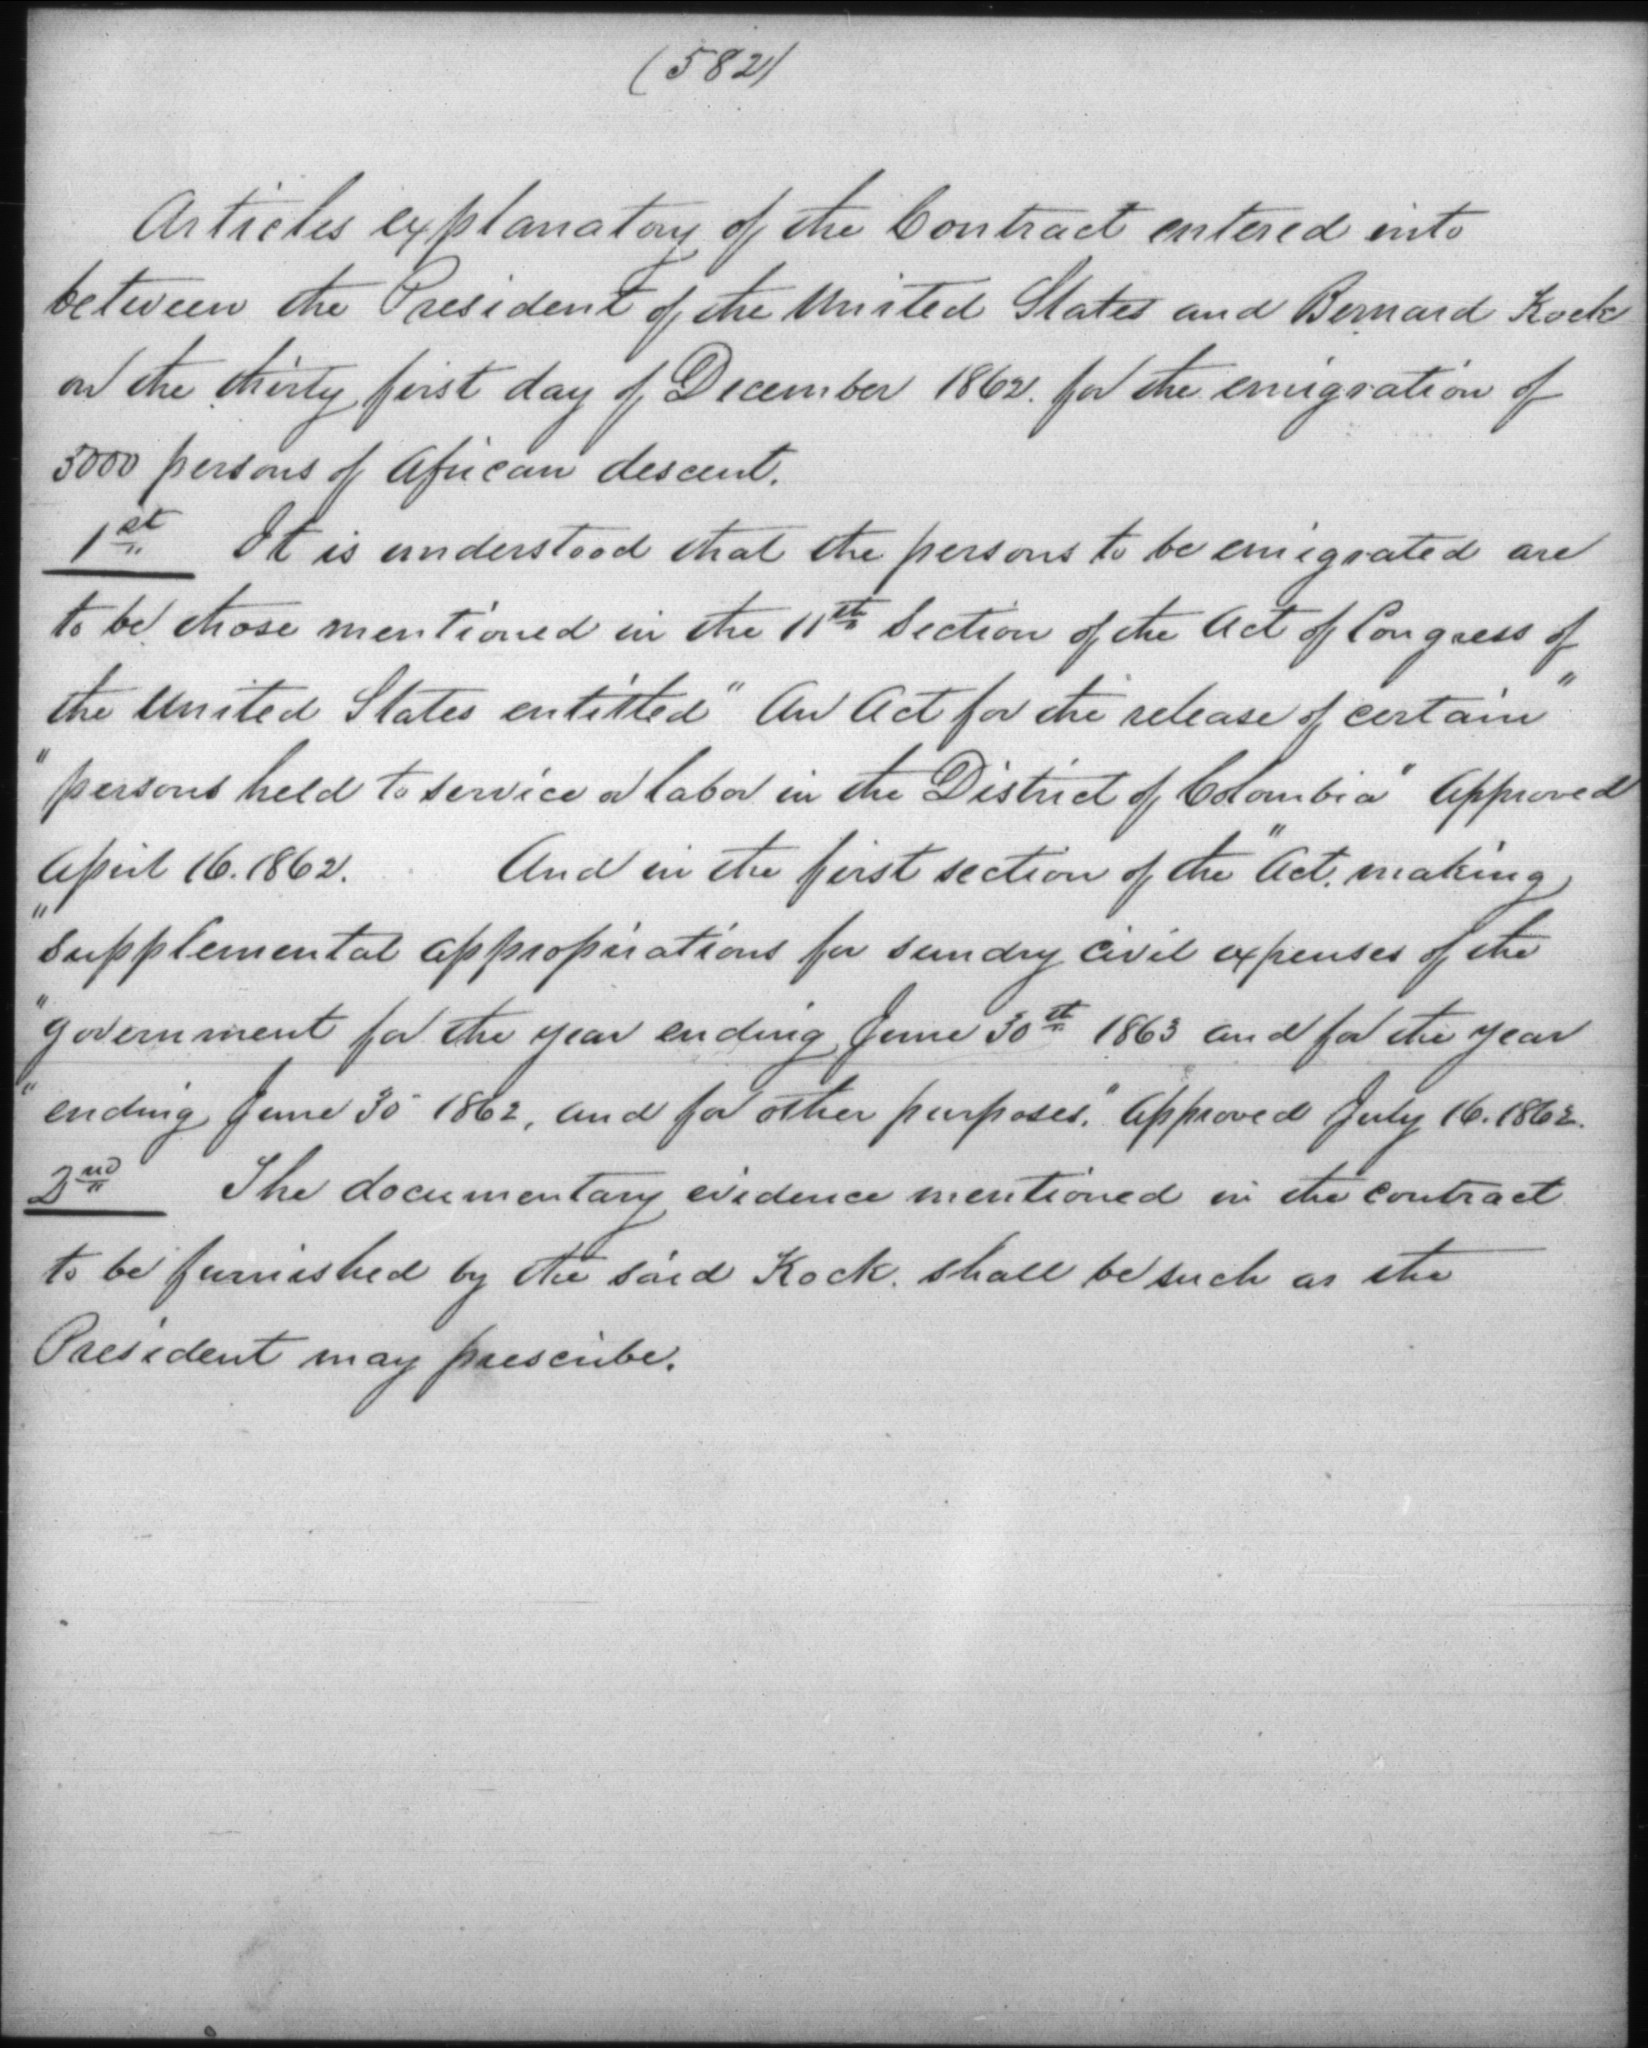 (582)
Articles explanatory of the Contract entered into
between the President of the United States and Bernard Kock
on the thirty first day of December 1862. for the emigration of
5000 persons of African descent.
1st It is understood that the persons to be emigrated are
to be those mentioned in the 11th Section of the Act of Congress of
the United States entitled "An Act for the release of certain"
"persons held to service or labor in the District of Colombia" Approved
April 16. 1862. And in the first section of the "Act, making
"supplemental appropriations for sundry civil expenses of the
"government for the year ending June 30th 1863 and for the year
"ending June 30 1862, and for other purposes." Approved July 16. 1862.
2nd The documentary evidence mentioned in the contract
to be furnished by the said Kock. shall be such as the
President may prescribe.